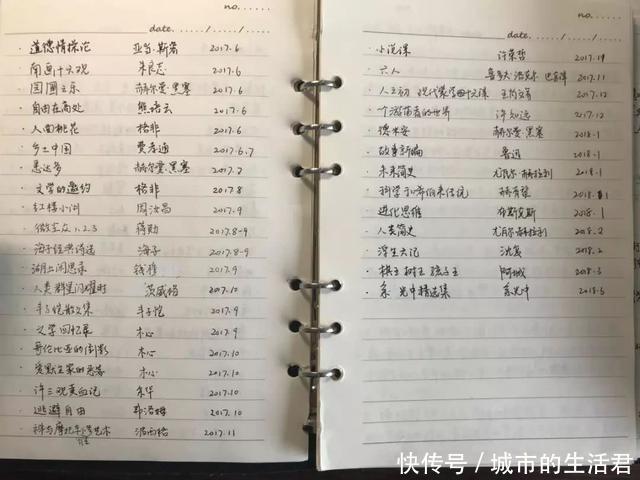 no.
date. / /
·道德情操论 亚当·斯密 2017.6
·南画十六观 朱良志 2017.6
·园圃之乐 赫尔曼·黑塞 2017.6
·自由在高处 熊培云 2017.6
·人面桃花 格非 2017.6
·乡土中国 费孝通 2017.6.7
·悉达多 赫尔曼·黑塞 2017.7
·文学的邀约 格非 2017.8
·红楼小讲 周汝昌 2017.9
1.2.3 蒋勋 2017.8-9
·海子经典诗选 海子 2017.8-9
·湖上闲思录 钱穆 2017.9
·人类群星闪耀时 茨威格 2017.10
·丰子恺散文集 丰子恺 2017.9
·文学回忆录 木心 2017.9
·哥伦比亚的倒影 木心 2017.10
·木心 2017.10
·许三观卖血记 余华 2017.10
·逃避自由 弗洛姆 2017.10
·禅与摩托车维修艺术 波西格 2017.11
no.
date. / /
·小说课 许荣哲 2017.11
·六人 鲁多夫·洛克尔 巴金译 2017.11
·人之初 现代蒙学四十六课 2017.12
·个游荡者的世界 许知远 2017.12
·德米安 赫尔曼·黑塞 2018.1
·故事新编 鲁迅 2018.1
·未来简史 尤瓦尔·赫拉利 2018.1
·科学 2018.1
·进化思维 2018.1
·人类简史 尤瓦尔·赫拉利 2018.2
·浮生六记 沈复 2018.2
·棋王 树王 孩子王 阿城 2018.3
·余光中精选集 余光中 2018.3
快传号／城市的生活君